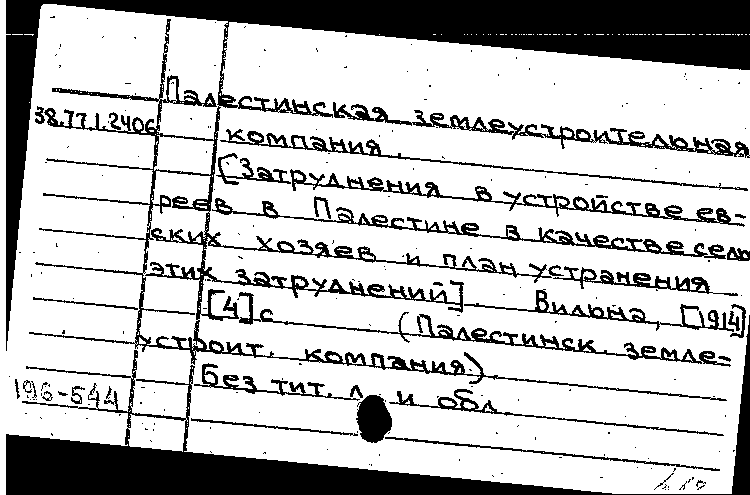 Палестинская землеустроительная
38.77.1.2406
компания.
[Затруднения в устройстве ев-
реев в Палестине в качестве сель
ских хозяев и план устранения
этих затруднений]. Вильна, [1914]
[4] с. (Палестинск. земле-
устроит. компания).
Без тит. л. и обл.
196-544